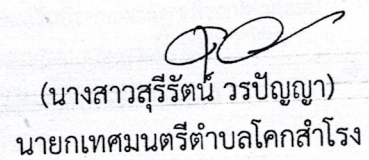 (นางสาวสุรีรัตน์ วรปัญญา)
นายกเทศมนตรีตำบลโคกสำโรง